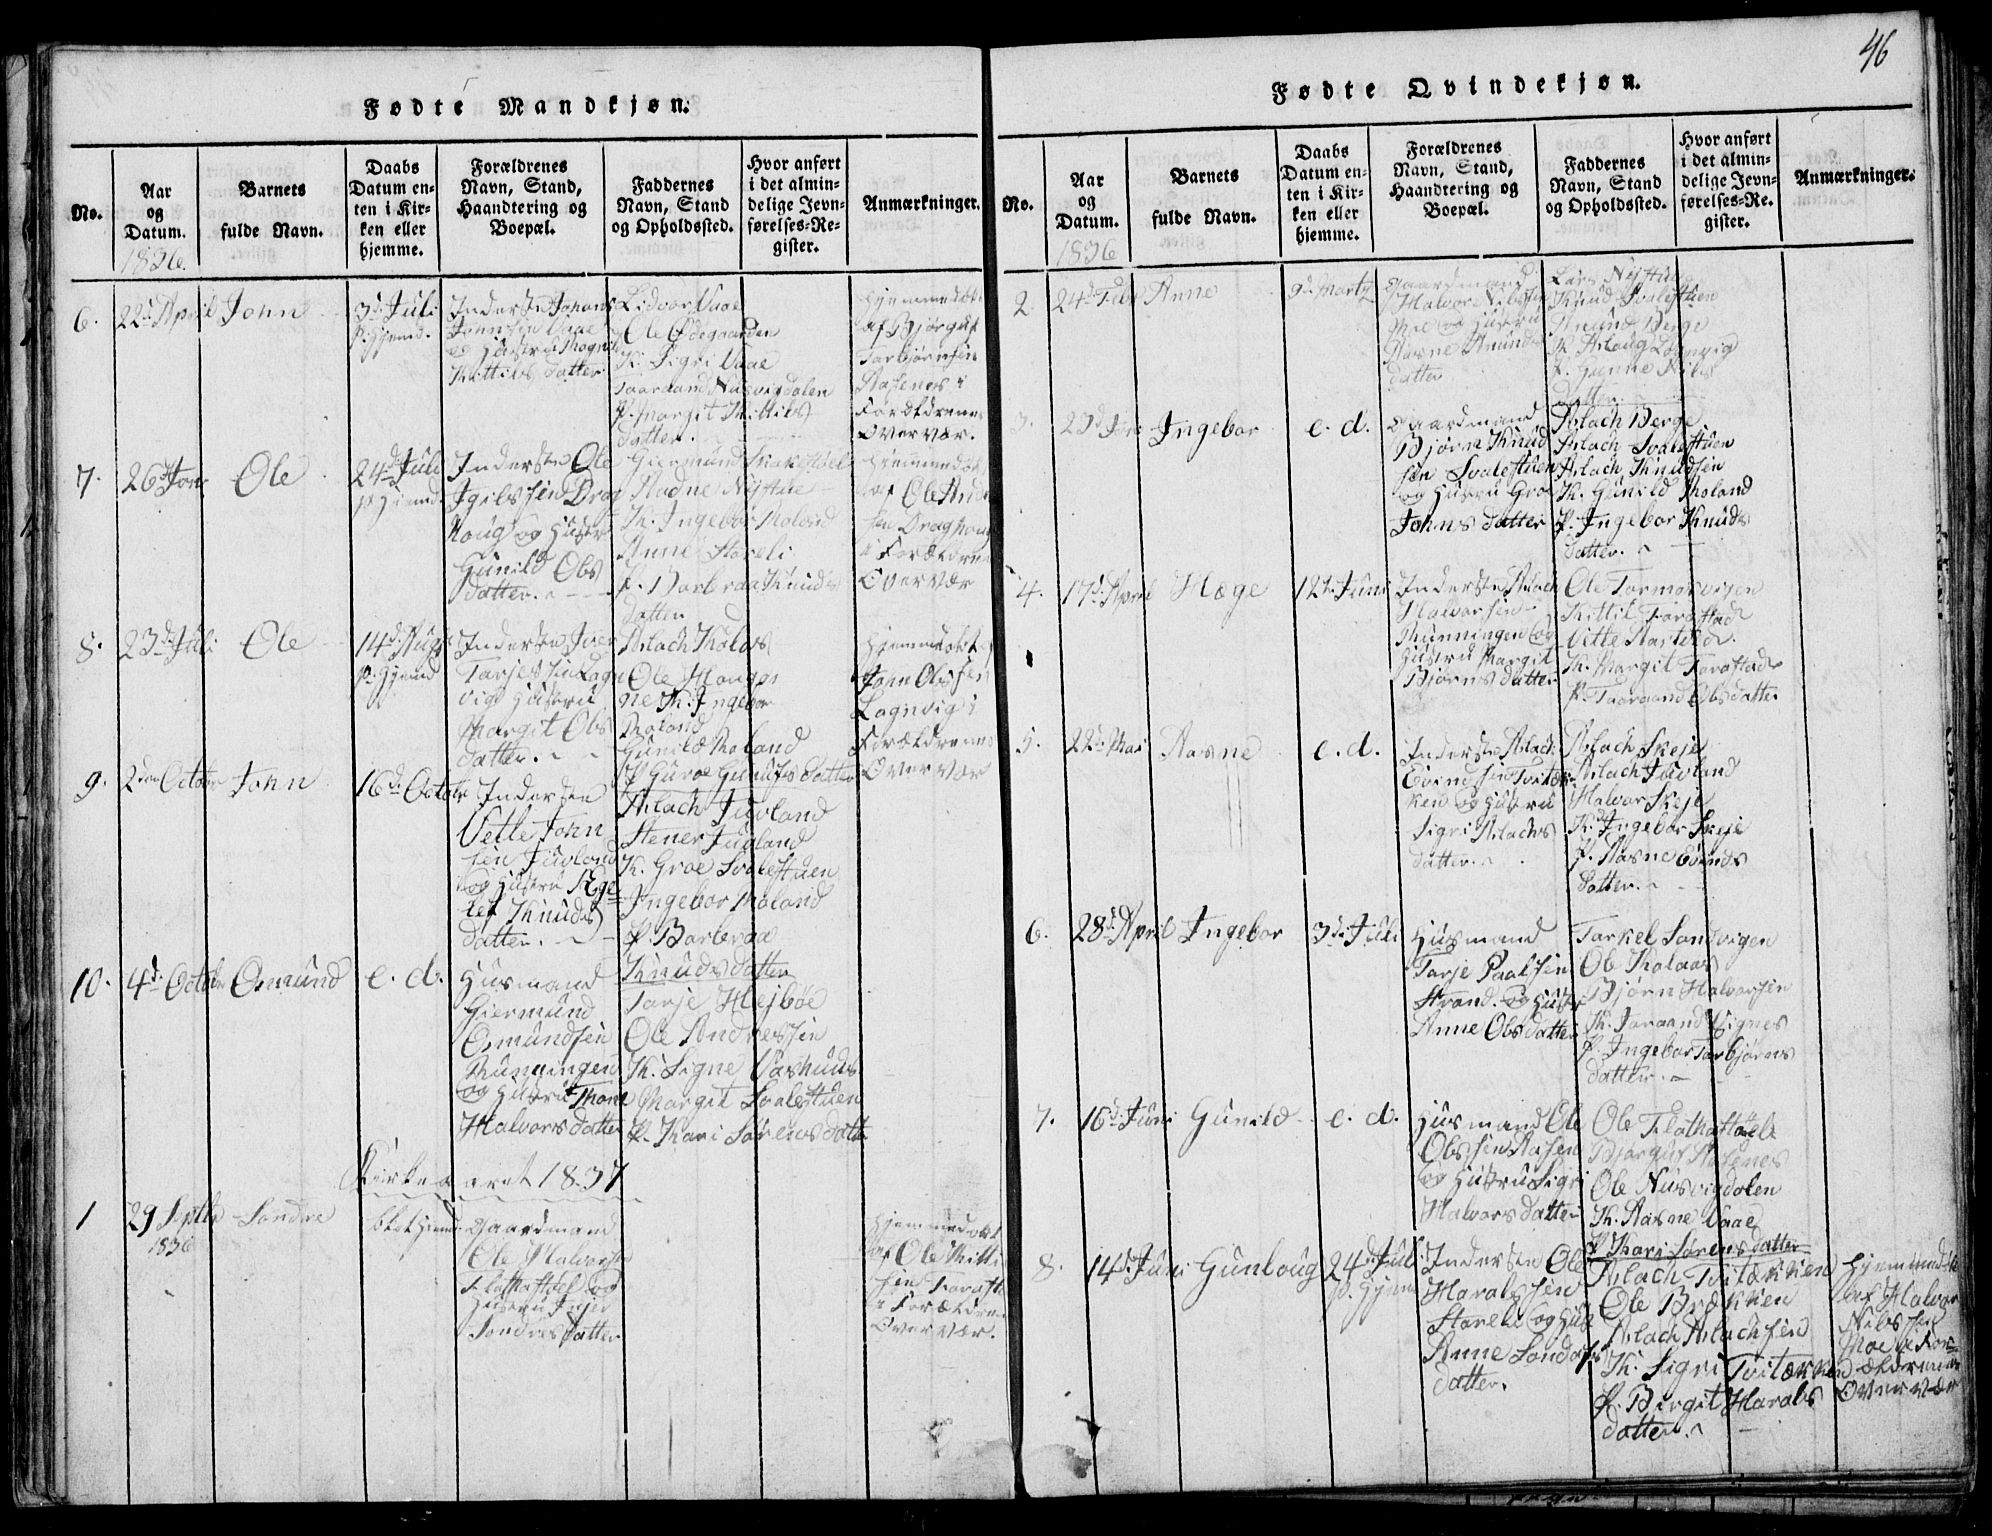 46
Fødte Mandkjøn.
No.
Aar
og
Datum.
Barnets
fulde Navn.
Daabs
Datum en-
ten i Kir-
ken eller
hjemme.
Forældrenes
Navn, Stand,
Haandtering og
Boepæl.
Faddernes
Navn, Stand
og Opholdssted.
Hvor anført
i det almin-
delige Jevn-
førelses-Re-
gister.
Anmærkninger.
1836.
6.
22d April
John
3d Juli
p: hjemd.
Inderste Johans
Johnsen Vaae
og Hustru
Kittils datter
Lidvor Vaae
Ole Ødegaarden
K. Sigri Vaae
Taaraand Nusvigdalen
P. Margit Kittils
datter.
Hjemmedøbt
af Bjørguf
Torbjørnsen
Aasenes i
Forældrenes
Overvær.
7.
26d Jan
Ole
24d Juli
p: hjemd
Inderste Ole
Igilssen Drag
houg og Hustr
Gunild Ols
datter.
Giermund Skakestøel
Aadne Nystue
K. Ingebor Moland
Anne Staveli
P. Barbraa Knuds
datter
Hjemmedøbt
af Ole And
sen Draghoug
i Forældrene
Overvær
8.
23d Juli
Ole
14d Augs
p: hjemd
Inderste Iver
Tarjessen Logn
vig Hustru
Margit Ols
datter.
Aslach Kolaas
Ole Haugan
ne K. Ingebor
Moland
Gunild Moland
P Guroe Gunufs datter
Hjemmedøbt af
John Olssen
Lognvig i
Forældrenes
Overvær
9.
2den October
John
16d October
Indersten
Vetle John
sen Juvland
og Hustru Ege
lef Knuds
datter.
Aslach Juvland
Stener Juvland
K. Groe Svalestuen
Ingebor Moland
P. Barbraa
Knuds datter
10.
4d October
Osmund
e. d.
Husmand
Giermund
Osmundsen
Kunningen
og Hustru Thone
Halvors datter
Tarje Hejbøe
Ole Andressen
K. Signe Vashuus
Margit Svalestuen
P. Kari Sørens datter
Kirkeaaret 1837
1
29 Septb
1836
Sondre
blot hjemd.
Gaardmand
Ole Halvorss
Flothastøel og
Hustru Inger
Sondres datter
Hjemmedøbt
af Ole Kitti
sen Forasta
i Forældrenes
Overvær.
Fødte Qvindekjøn.
No.
Aar
og
Datum.
Barnets
fulde Navn.
Daabs
Datum en-
ten i Kir-
ken eller
hjemme.
Forældrenes
Navn, Stand,
Haandtering og
Boepæl.
Faddernes
Navn, Stand
og Opholdssted.
Hvor anført
i det almin-
delige Jevn-
førelses-Re-
gister.
Anmærkninger.
1836
2.
24d Febr
Anne
9d Martz
Gaardmand
Halvor Nilssen
Moe og Hustru
Aasne Anunds
datter
Lars Nystue
Knud Svalestuen
Anund Berge
K. Aslaug Lognvig
P. Gunne Nils
datter
3.
23d Jan
Ingebor
e. d.
Gaardmand
Bjørn Knud
sen Svalestuen
og Hustru Groe
Johns datter
Aslach Berge
Aslach Svalestuen
Aslach Knudsen
K. Gunild Moland
P. Ingebor Knuds
datter.
4.
17d April
Hæge
12te Juni
Inderste Aslach
Halvorsen
Kunningen og
Hustru Margit
Bjørns datter
Ole Tormosvigen
Kittil Forastad
Vetle Aasland
K. Margit Forastad
P. Taaraand Olsdatter
5.
22d Mai
Aasne
e. d.
Inderste Aslach
Evindsen Tvitæk
ken og Hustru
Sigri Aslachs
datter.
Aslach Skeje
Aslach Juvland
Halvor Skeje
K. Ingebor Skeje
P. Aasne Evinds
datter.
6.
28d April
Ingebor
3d Juli
Husmand
Tarje Paalsen
Strand. og Hustr
Anne Olsdatter
Tarkel Sandvigen
Ole Kolaas
Bjørn Halvorsen
K. Taraand Vignes
P. Ingebor Torbjørns
datter.
7.
16d Juni
Gunild
e. d.
Husmand Ole
Olssen Aasen
og Hustru Sigri
Halvorsdatter
Ole Flothastøel
Bjørguf Aasenes
Ole Nusvigdalen
K. Aasne Vaae
P Kari Sørensdatter
8.
14d Juni
Gunloug
24d Juli
p. hjemd
Indersten Ole
Haralssen
Staveli og Hust
Anne Sondres
datter.
Aslach Tvitækken
Ole Brækken
Aslach Aslachsen
K. Sigri Tvitækken
P. Birgit Harals
datter.
Hjemmedøbt
af Halvor
Nilssen
Moe i For-
ældrenes
Overvær